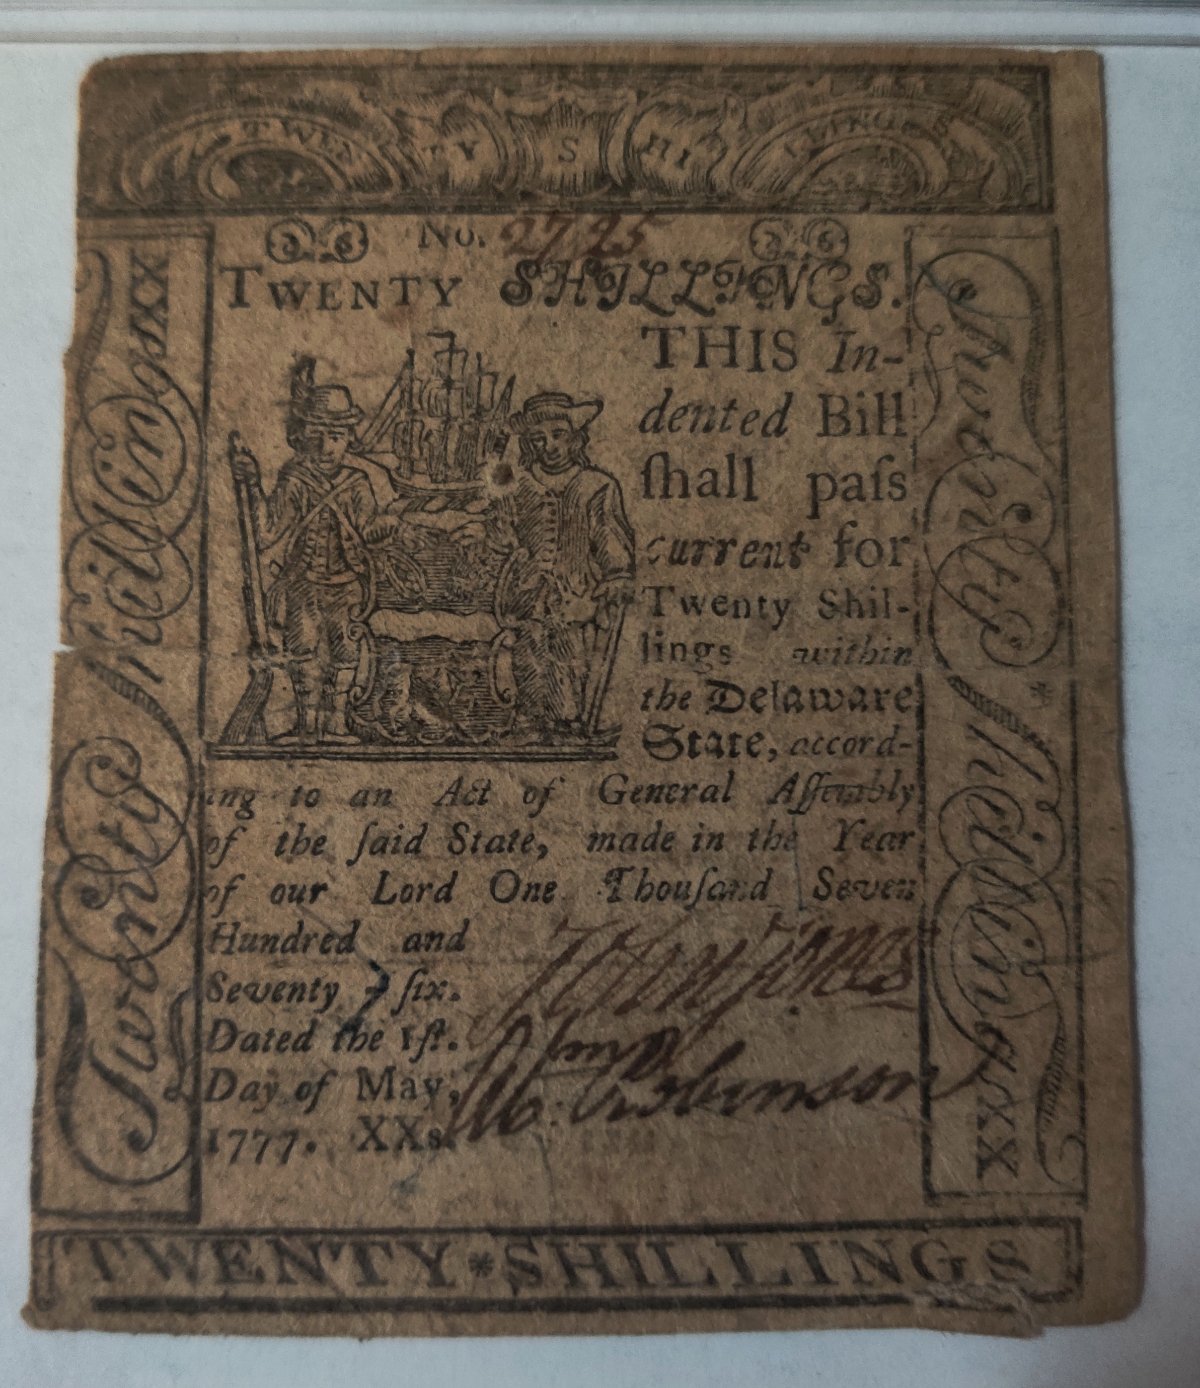 TWENTY SHILLINGS
No. 2725
TWENTY SHILLINGS.
THIS In-
dented Bill
ſhall paſs
current for
Twenty Shil-
lings within
the Delaware
State, accord-
ing to an Act of General Aſſembly
of the ſaid State, made in the Year
of our Lord One Thouſand Seven
Hundred and
Seventy-ſix.
Dated the 1ſt.
Day of May,
1777. XXs.
John Jones
Wm Robinson
Twenty Shillings XXs
Twenty * Shillings XXs
TWENTY * SHILLINGS